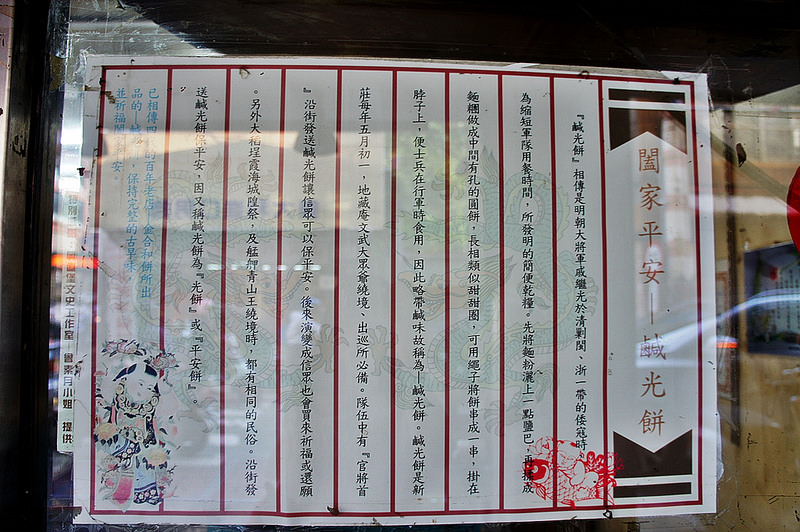 闔家平安—鹹光餅
『鹹光餅』相傳是明朝大將軍戚繼光於清剿閩、浙一帶的倭寇時，
為縮短軍隊用餐時間，所發明的簡便乾糧。先將麵粉灑上一點鹽巴，再揉成
麵糰做成中間有孔的圓餅，長相類似甜甜圈，可用繩子將餅串成一串，掛在
脖子上，便士兵在行軍時食用，因此略帶鹹味故稱為—鹹光餅。鹹光餅是新
莊每年五月初一，地藏庵文武大眾爺繞境、出巡所必備。隊伍中有『官將首
』沿街發送鹹光餅讓信眾可以保平安。後來演變成信眾也會買來祈福或還願
。另外大稻埕霞海城隍祭，及艋舺青山王繞境時，都有相同的民俗。沿街發
送鹹光餅保平安，因又稱鹹光餅為『光餅』或『平安餅』。
已相傳四 的百年老店 金合和餅所出
品的—鹹 ，保持完整的古早味，
並祈福闔 安。
文史工作室 曾素月小姐 提供